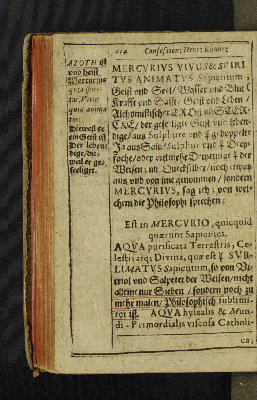 214 Confession; Henr: Khunr:
AZOTH ist
und heist
Mercurius
quia spiri-
tus, Virus
quia anima-
tus:
Dieweil er
ein Geist ist
Der leben-
dige/die-
weil er ge-
seeliget.
MERCURIUS VIVUS & SPIRI
TVS ANIMATVS Sapientum,
Geist und Seel/ Wasser und Blut
Krafft und Safft/ Geist und Leben/
der geseeligte Geist und leben-
dige/ aus Sulphure und gedoppelte
Ja aus Salz/ Sulphur und Drey-
fache/ oder vielmehr Dreyeinige der
Weisen; im Quecksilber/ noch etwas
aus und von ime genommen/ sondern
MERCURIVS, sag ich; von wel-
chem die Philosophi sprechen:
Est in MERCVRIO, quicquid
quærunt Sapientes.
AQVA purificata Terrestris, Cœ-
lestis atq; Divina, quæ est SUB-
LIMATVS Sapientum, so von Vi-
triol und Salpeter der Weisen/ nicht
alleine nur Sieben/ sondern noch zu
mehr malen/ Philosophisch sublimi-
ret ist. AQVA hylealis & Mun-
di - Primordialis viscosa Catholi-
ca;